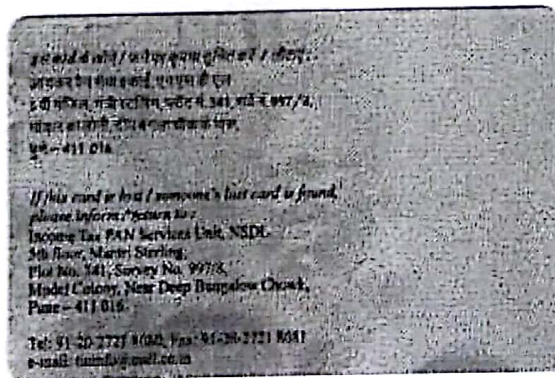 इस कार्ड के खोने / पाने पर कृपया सूचित करें / लौटाएं :
आयकर पैन सेवा इकाई, एन एस डी एल
5 वीं मंजिल, मंत्री स्टर्लिंग, प्लॉट नं. 341, सर्वे नं. 997/8,
मॉडल कालोनी, दीप बंगला चौक के पास,
पुणे – 411 016
If this card is lost / someone's lost card is found,
please inform / return to :
Income Tax PAN Services Unit, NSDL
5th floor, Mantri Sterling,
Plot No. 341, Survey No. 997/8,
Model Colony, Near Deep Bungalow Chowk,
Pune – 411 016
Tel: 91-20-2721 8080, Fax: 91-20-2721 8081
e-mail: